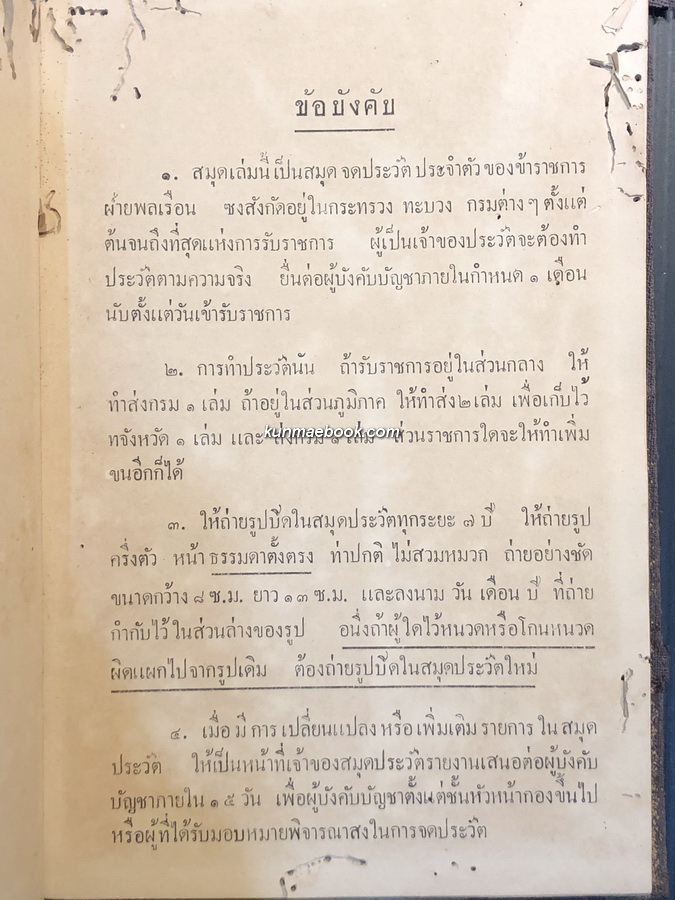 ข้อบังคับ
๑. สมุดเล่มนี้เป็นสมุด จดประวัติ ประจำตัว ของข้าราชการ
ฝ่ายพลเรือน ซึ่งสังกัดอยู่ในกระทรวง ทะบวง กรมต่าง ๆ ตั้งแต่
ต้นจนถึงที่สุดแห่งการรับราชการ ผู้เป็นเจ้าของประวัติจะต้องทำ
ประวัติตามความจริง ยื่นต่อผู้บังคับบัญชาภายในกำหนด ๑ เดือน
นับตั้งแต่วันเข้ารับราชการ
๒. การทำประวัตินั้น ถ้ารับราชการอยู่ในส่วนกลาง ให้
ทำส่งกรม ๑ เล่ม ถ้าอยู่ในส่วนภูมิภาค ให้ทำส่ง ๒ เล่ม เพื่อเก็บไว้
ที่จังหวัด ๑ เล่ม และ ส่งกรม ๑ เล่ม ส่วนราชการใดจะให้ทำเพิ่ม
ขึ้นอีกก็ได้
kunmaebook.com
๓. ให้ถ่ายรูปปิดในสมุดประวัติทุกระยะ ๗ ปี ให้ถ่ายรูป
ครึ่งตัว หน้า ธรรมดาตั้งตรง ท่าปกติ ไม่สวมหมวก ถ่ายอย่างชัด
ขนาดกว้าง ๘ ซ.ม. ยาว ๑๓ ซ.ม. และลงนาม วัน เดือน ปี ที่ถ่าย
กำกับไว้ ในส่วนล่างของรูป อนึ่งถ้าผู้ใดไว้หนวดหรือโกนหนวด
ผิดแผกไปจากรูปเดิม ต้องถ่ายรูปปิดในสมุดประวัติใหม่
๔. เมื่อ มี การ เปลี่ยนแปลง หรือ เพิ่มเติม รายการ ใน สมุด
ประวัติ ให้เป็นหน้าที่เจ้าของสมุดประวัติรายงานเสนอต่อผู้บังคับ
บัญชาภายใน ๑๕ วัน เพื่อผู้บังคับบัญชาตั้งแต่ชั้นหัวหน้ากองขึ้นไป
หรือผู้ที่ได้รับมอบหมายพิจารณาสั่งในการจดประวัติ